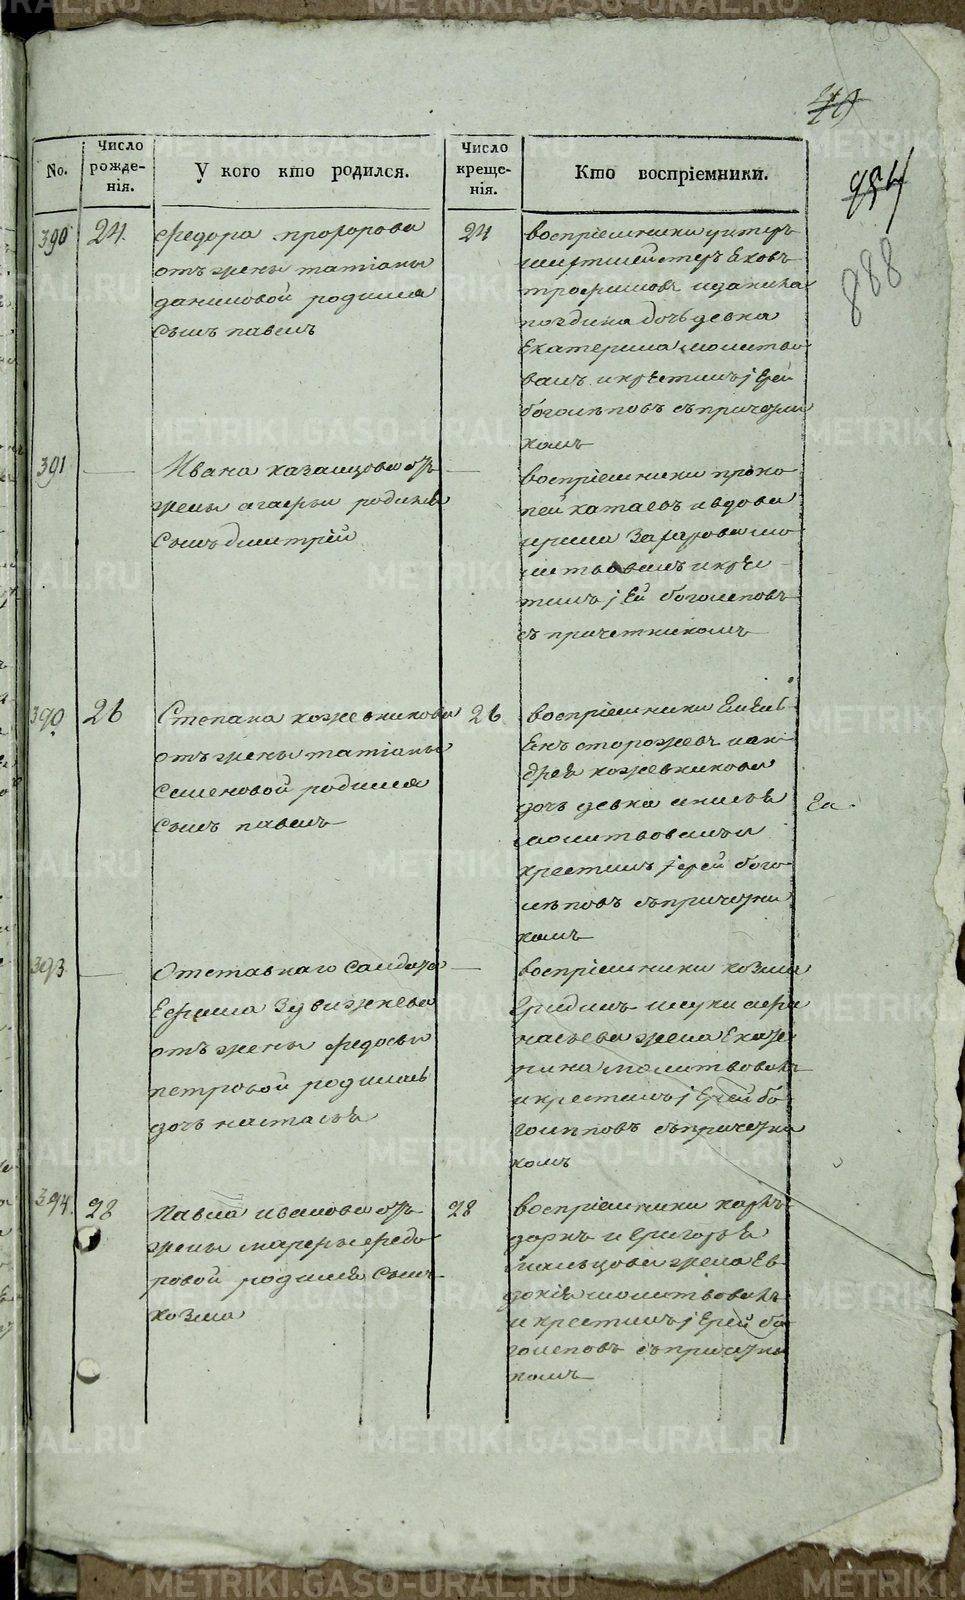 40
954
888
No.
Число рожде-
нія.
У кого кто родился.
Число креще-
нія.
Кто воспріемники.
390
24
федора проророва
отъ жены татіаны
даниловой родился
сынъ павелъ
24
воспріемники унтеръ
шихтмейстеръ Еховъ
трофимовъ иданила
поздина дочь девка
Екатерина молитво
валъ икрестилъ іерей
боголеповъ съпричетни
комъ
391
Ивана казанцова отъ
жены агафьи родился
сынъ дмитрій
воспріемники проко
пеи катаевъ ивдова
ирина Захарова мо
литвовалъ икре
тилъ іей боголеповъ
съ причетникомъ
390
26
Степана кожевникова
отъ жены татіаны
Семеновой родился
сынъ павелъ
26
воспріемники
сторожевъ иан
дрея кожевникова
дочь девка анисья
молитвовалъи
крестилъ іерей бого
леповъ съпричетни
комъ
Еа.
393
Отставнаго солдата
Ефима Зувижжева
отъ жены федосьи
петровой родилась
дочь настасья
воспріемники козма
Гридинъ илуки афа
насьева жена Екате
рина молитвовалъ
икрестилъ іерей бо
голеповъ съпричетни
комъ
394
28
Павла иванова отъ
жены марфы федо
ровой родился сынъ
козма
28
воспріемники
и григорья
мальцова жена Ев
докія молитвовалъ
и крестилъ іерей бо
голеповъ съпричетни
комъ
METRIKI.GASO-URAL.RU